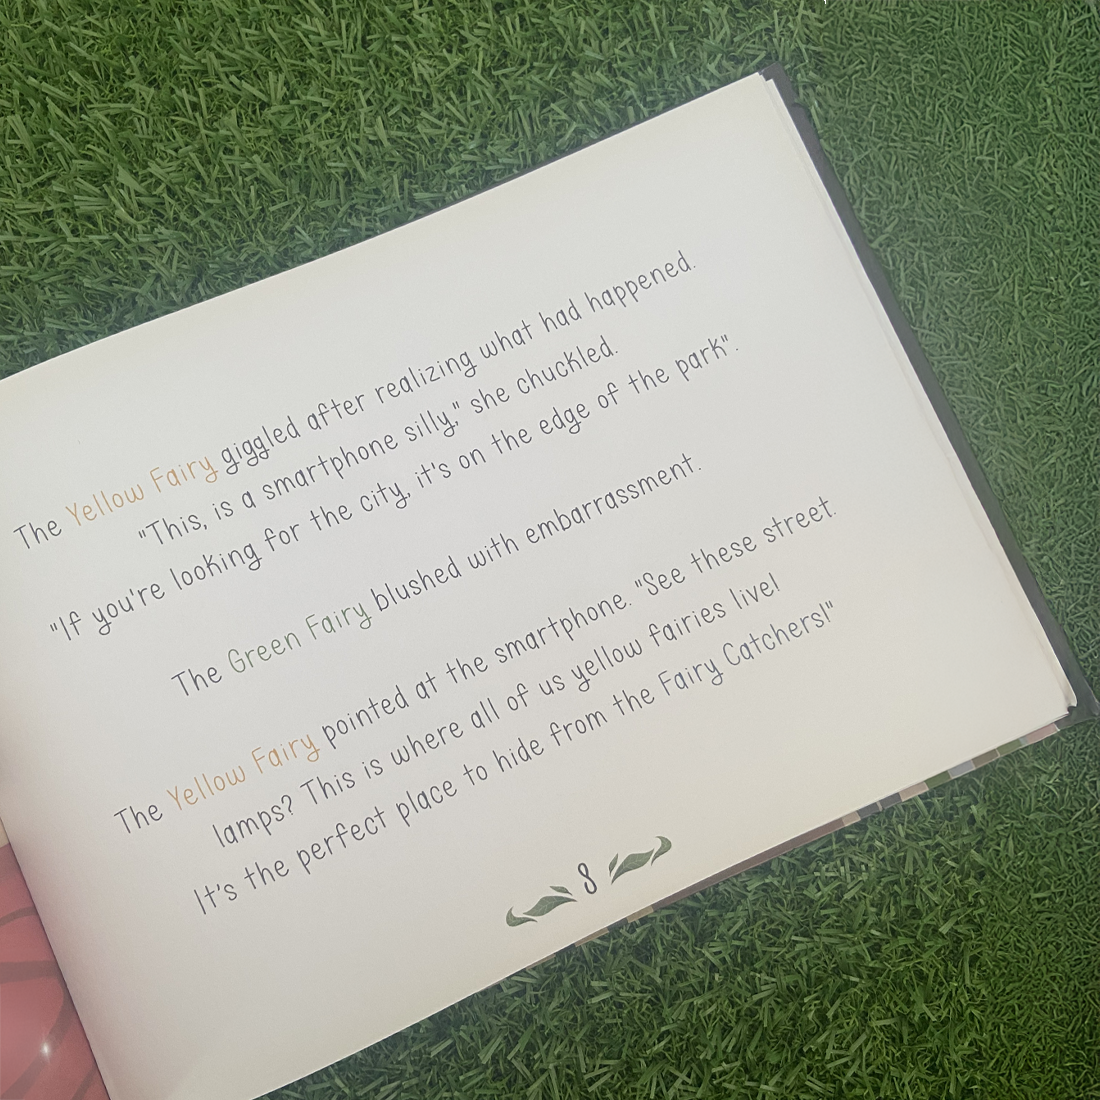 The Yellow Fairy giggled after realizing what had happened.
"This, is a smartphone silly," she chuckled.
"If you're looking for the city, it's on the edge of the park".
The Green Fairy blushed with embarrassment.
The Yellow Fairy pointed at the smartphone. "See these street
lamps? This is where all of us yellow fairies live!
It's the perfect place to hide from the Fairy Catchers!"
8